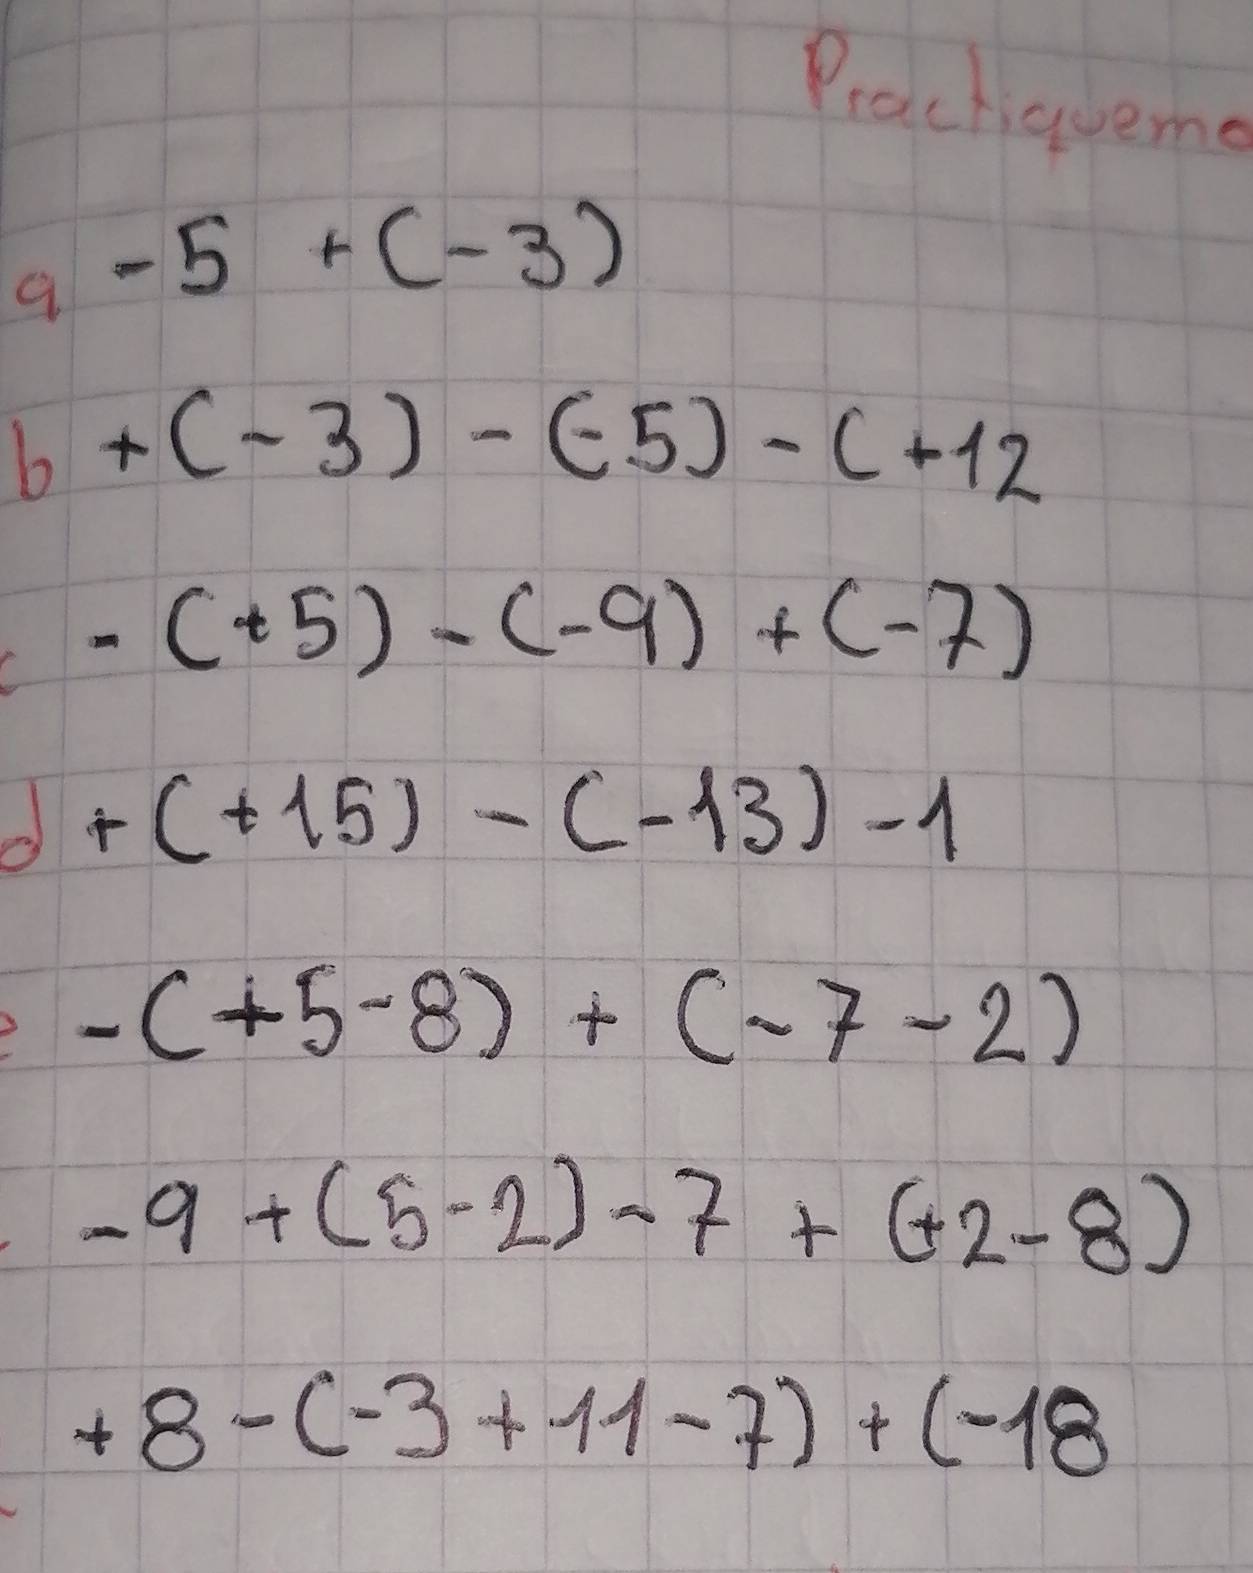 Practiquemo
a -5 +(-3)
b +(-3) -(-5) -(+12
c -(+5) -(-9) +(-7)
d +(+15) -(-13) -1
e -(+5-8) + (-7-2)
-9 +(5-2) -7 + (+2-8)
+8 -(-3+11-7) +(-18